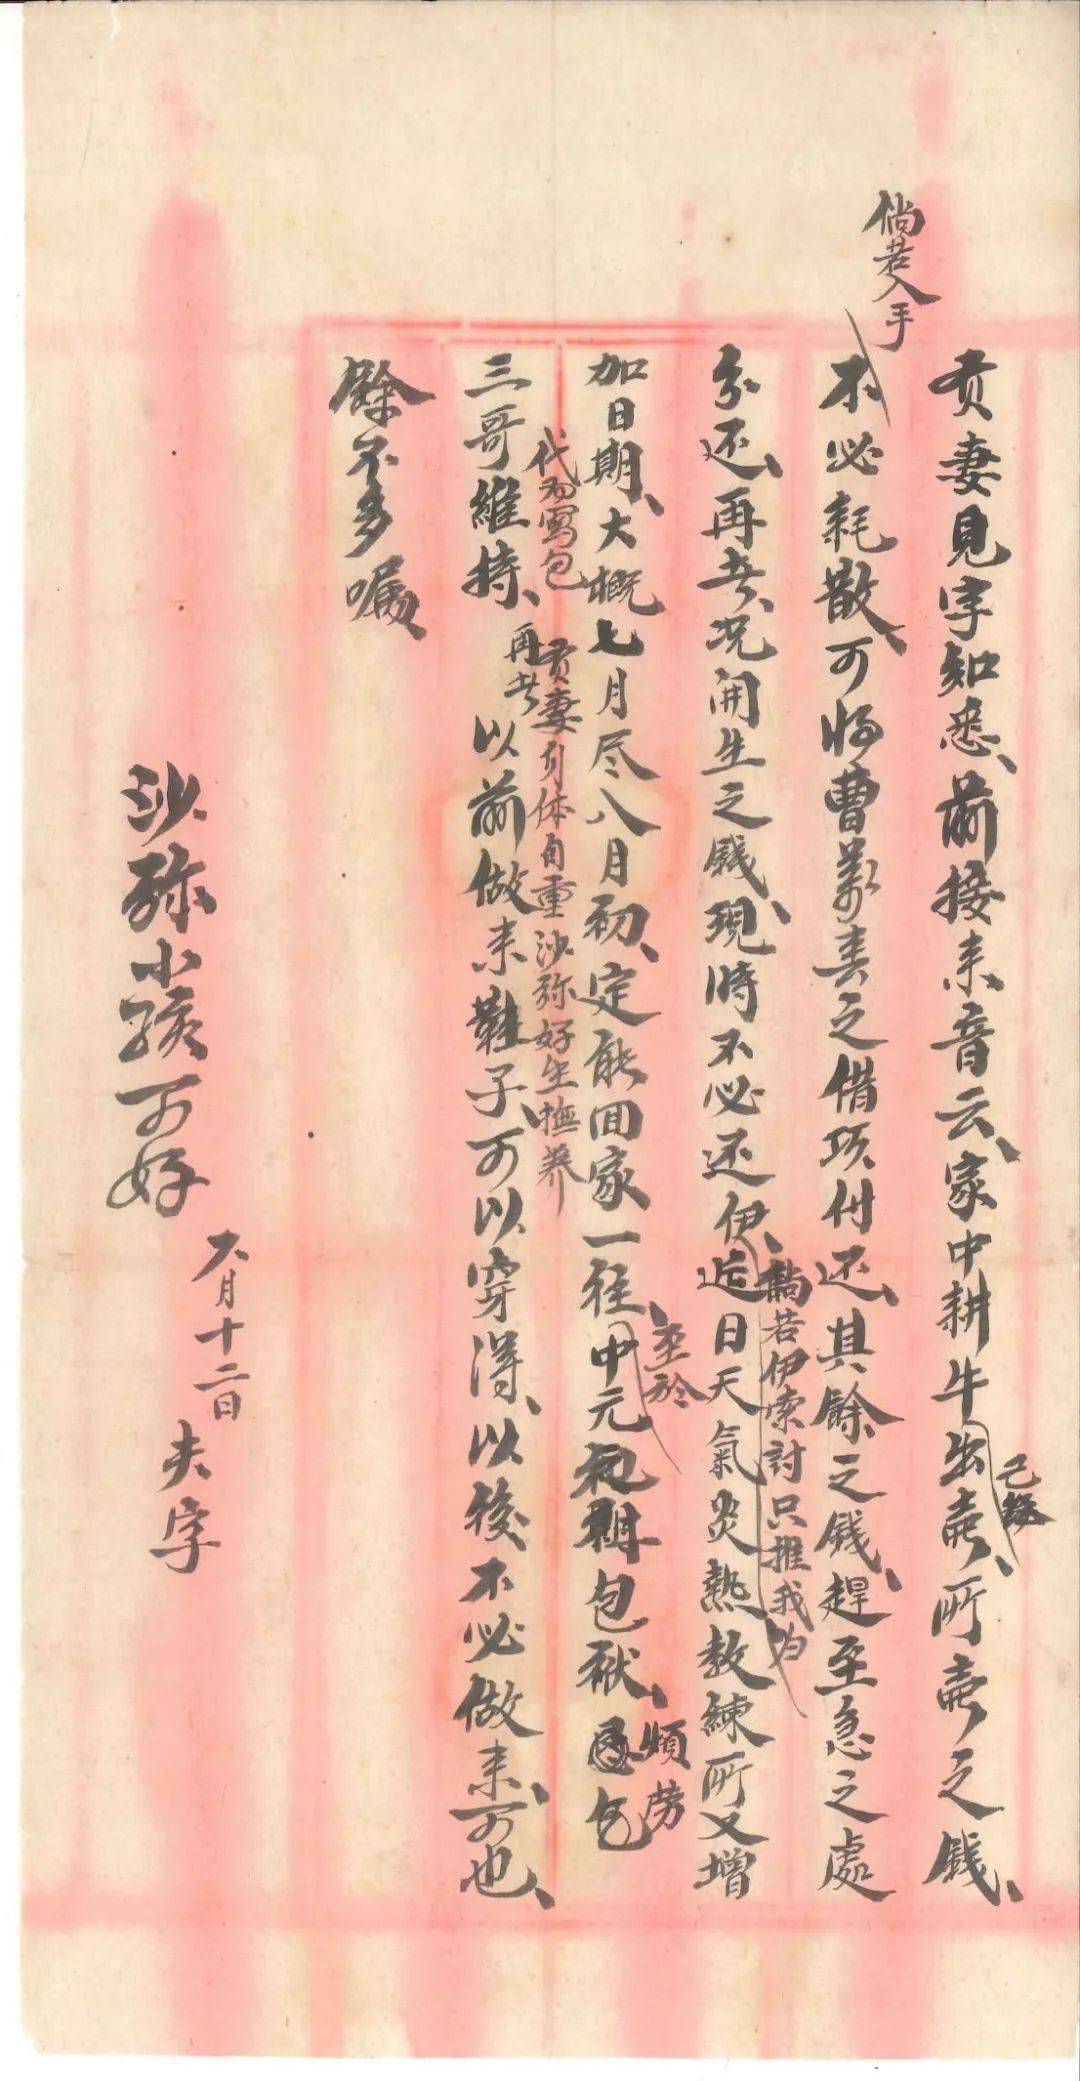 贡妻見字知悉、前接来音云、家中耕牛出賣、所賣之錢、
已经
倘若入手
不必耗散、可将曹萬春之借项付还、其餘之錢、趕至急之處
分还、再者、况開生之錢、現時不必还伊、近日天氣炎熱教練所又增
倘若伊索討只推我为
加日期、大概七月尽八月初、定能回家一徃、中元包袱、乞
至於
煩劳
三哥維持、以前做来鞋子、可以穿得、以後不必做来、可也、
代为寫包
再者
贡妻身体自重沙弥好生撫养
餘不多嘱、
沙弥小孩可好
六月十二日
夫字